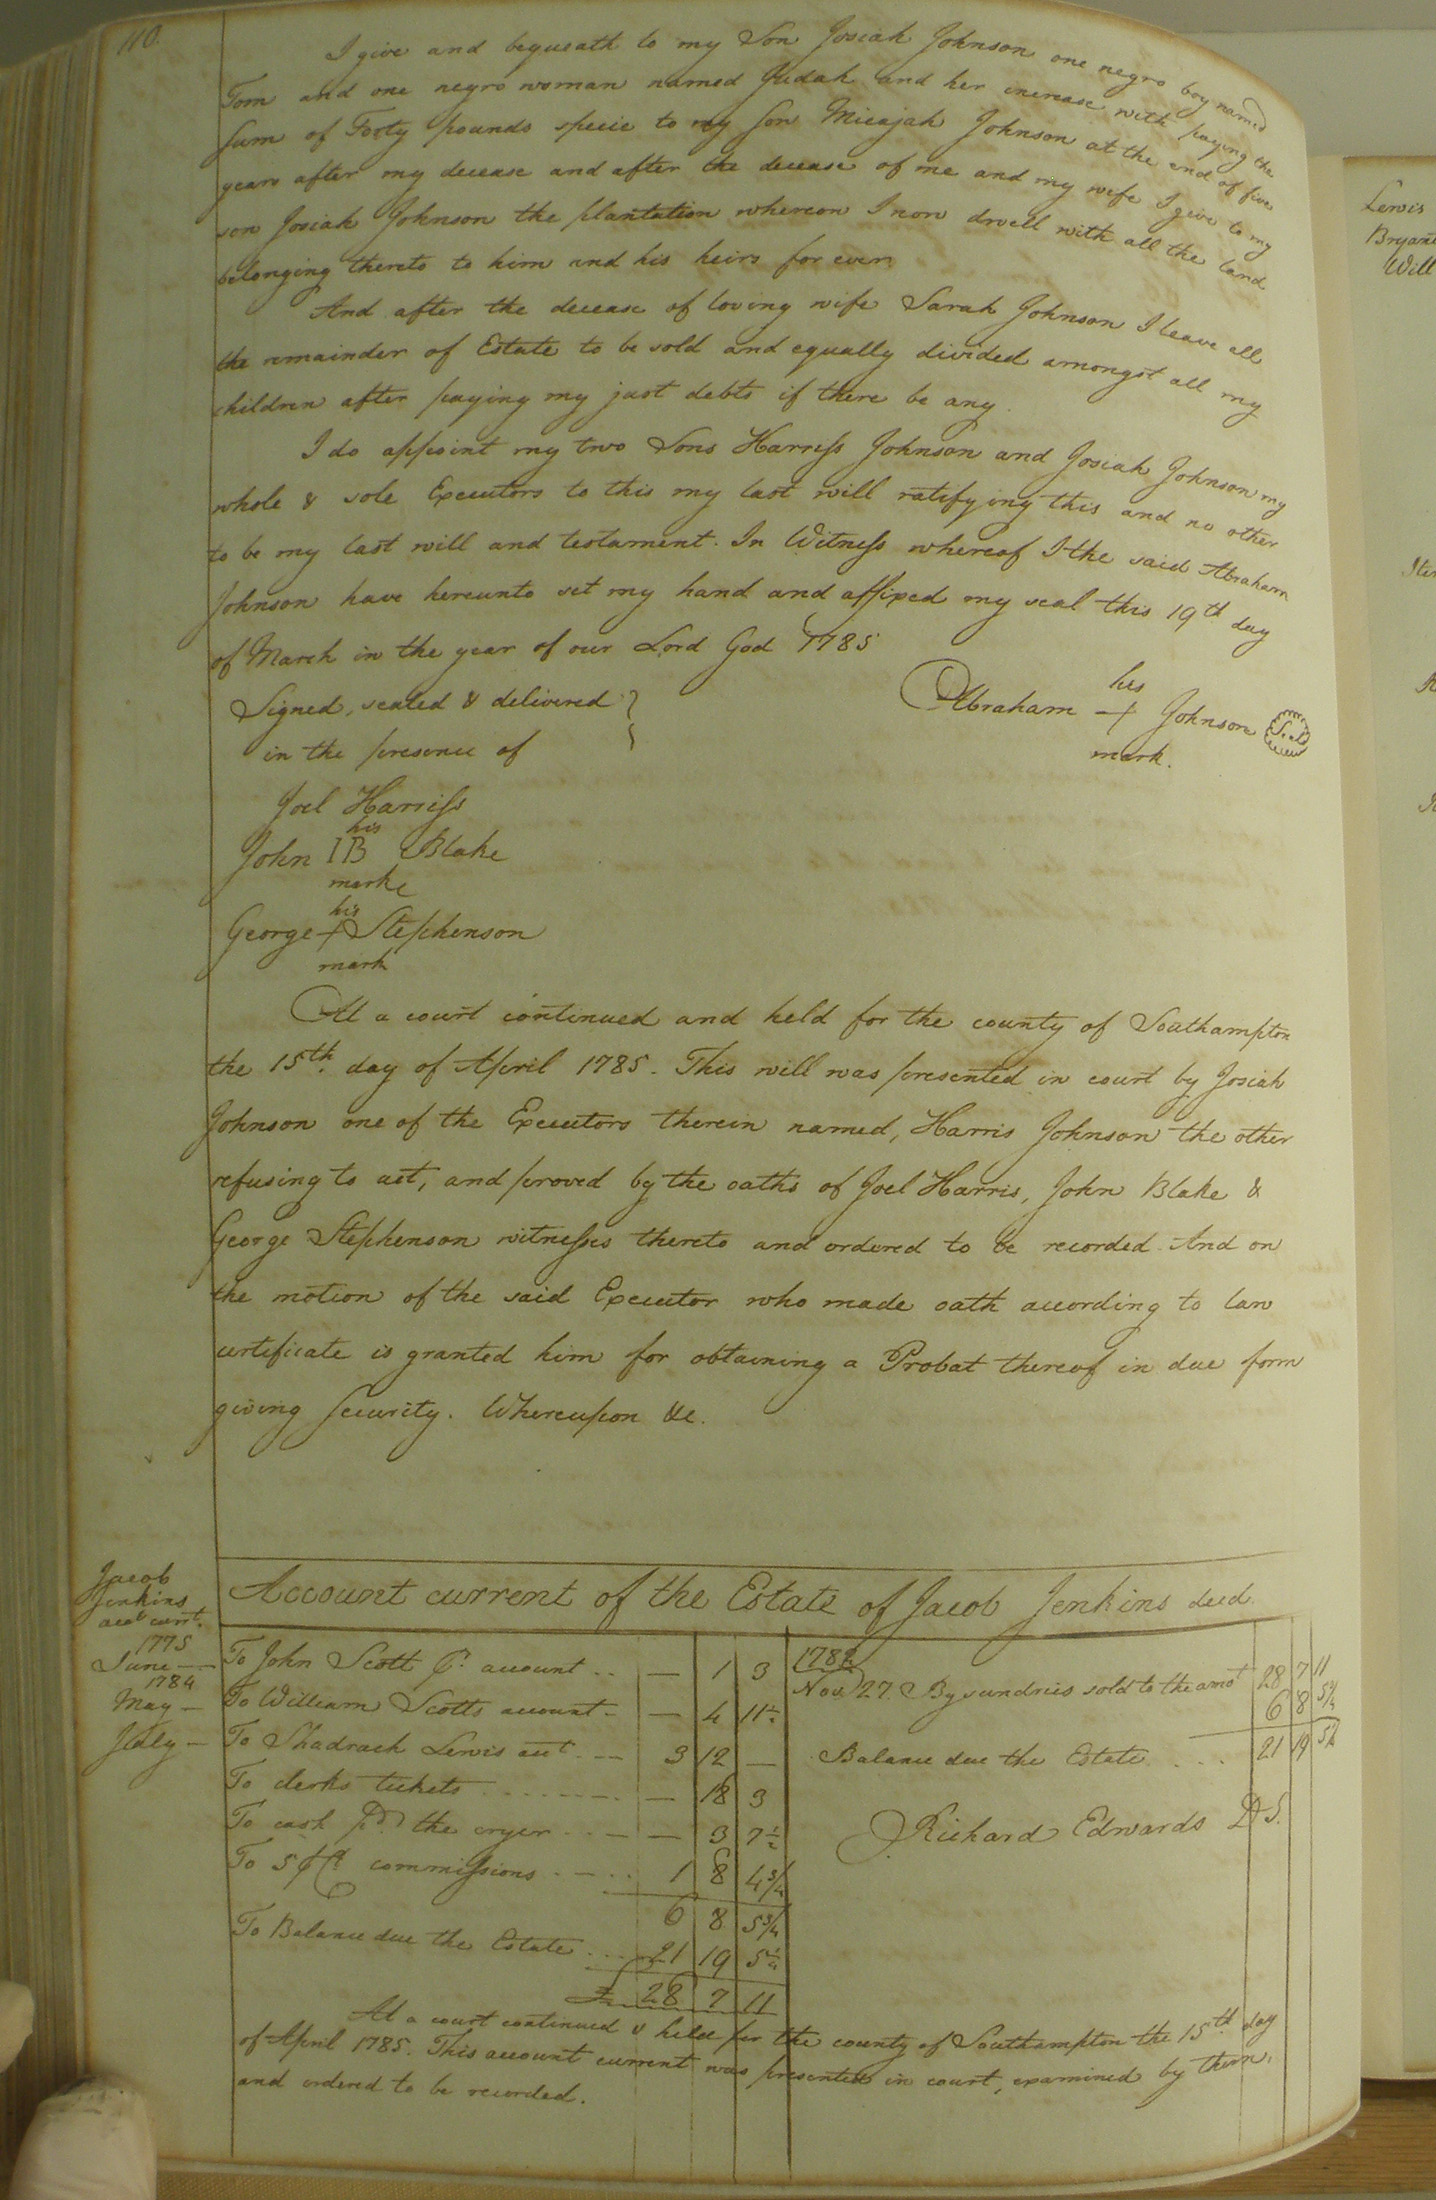 110.
I give and bequeath to my Son Josiah Johnson one negro boy named
Tom and one negro woman named Judah and her increase with paying the
sum of Forty pounds specie to my son Micajah Johnson at the end of five
years after my decease and after the decease of me and my wife I give to my
son Josiah Johnson the plantation whereon I now dwell with all the land
belonging thereto to him and his heirs for ever.
And after the decease of loving wife Sarah Johnson I leave all
the remainder of Estate to be sold and equally divided amongst all my
children after paying my just debts if there be any.
I do appoint my two Sons Harriss Johnson and Josiah Johnson my
whole & sole Executors to this my last will ratifying this and no other
to be my last will and testament. In Witness whereof I the said Abraham
Johnson have hereunto set my hand and affixed my seal this 19th day
of March in the year of our Lord God 1785
Signed, sealed & delivered
in the presence of
his
Abraham + Johnson Seal
mark.
Joel Harriss
his
John IB Blake
mark
his
George + Stephenson
mark
At a court continued and held for the county of Southampton
the 15th. day of April 1785. This will was presented in court by Josiah
Johnson one of the Executors therein named, Harris Johnson the other
refusing to act, and proved by the oaths of Joel Harris, John Blake &
George Stephenson witnesses thereto and ordered to be recorded. And on
the motion of the said Executor who made oath according to law
certificate is granted him for obtaining a Probat thereof in due form
giving security. Whereupon &c.
Jacob
Jenkins
acct currt.
Account current of the Estate of Jacob Jenkins decd.
1775
June -- To John Scott pr. account .. — 1 3
1784
May — To William Scotts account - — 4 11½
July — To Shadrach Lewis acct. -- 3 12 —
To clerks tickets ........ — 18 3
To cash pd. the cryer .. — — 3 7½
To 5 pCt commissions .... 1 8 4¾
6 8 5¾
To Balance due the Estate .... 21 19 5¼
£ 28 7 11
Nov 27. By sundries sold to the amot 28 7 11
6 8 5¾
Balance due the Estate .... 21 19 5¼
Richard Edwards D S.
At a court continued & held for the county of Southampton the 15th. day
of April 1785. This account current was presented in court, examined by them,
and ordered to be recorded.
Lewis
Will